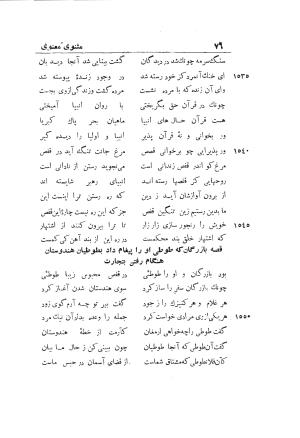 ۷۶
مثنوی معنوی
سنگ سرمه چونك شد در دیدگان گشت بینایی شد آنجا دیدبان
۱۵۳۵ ای خنك آن مرد کز خود رسته شد در وجود زندهٔ پیوسته شد
وای آن زنده که با مرده نشست مرده گشت و زندگی از وی بجست
چونك در قرآن حق بگریختی با روان انبیا آمیختی
هست قرآن حال‌های انبیا ماهیان بحر پاك کبریا
ور بخوانی و نهٔ قرآن پذیر انبیا و اولیا را دیده گیر
۱۵۴۰ ور پذیرایی چو برخوانی قصص مرغ جانت تنگ آید در قفص
مرغ کو اندر قفص زندانی است می‌نجوید رستن از نادانی است
روحهایی کز قفصها رسته‌اند انبیای رهبر شایسته‌اند
از برون آوازشان آید ز دین که ره رستن ترا اینست این
ما بدین رستیم زین تنگین قفص جز که این ره نیست چارهٔ این قفص
۱۵۴۵ خویش را رنجور سازی زار زار تا ترا بیرون کنند از اشتهار
که اشتهار خلق بند محکمست در ره این از بند آهن کی کمست
قصه بازرگان که طوطی او را پیغام داد بطوطیان هندوستان
هنگام رفتن بتجارت
بود بازرگان و او را طوطئی در قفص محبوس زیبا طوطئی
چونك بازرگان سفر را ساز کرد سوی هندستان شدن آغاز کرد
هر غلام و هر کنیزك را ز جود گفت بهر تو چه آرم گوی زود
۱۵۵۰ هر یکی از وی مرادی خواست کرد جمله را وعده بداد آن نیك مرد
گفت طوطی را چه خواهی ارمغان کآرمت از خطهٔ هندوستان
گفت آن طوطی که آنجا طوطیان چون ببینی کن ز حال ما بیان
کآن فلان طوطی که مشتاق شماست از قضای آسمان در حبس ماست